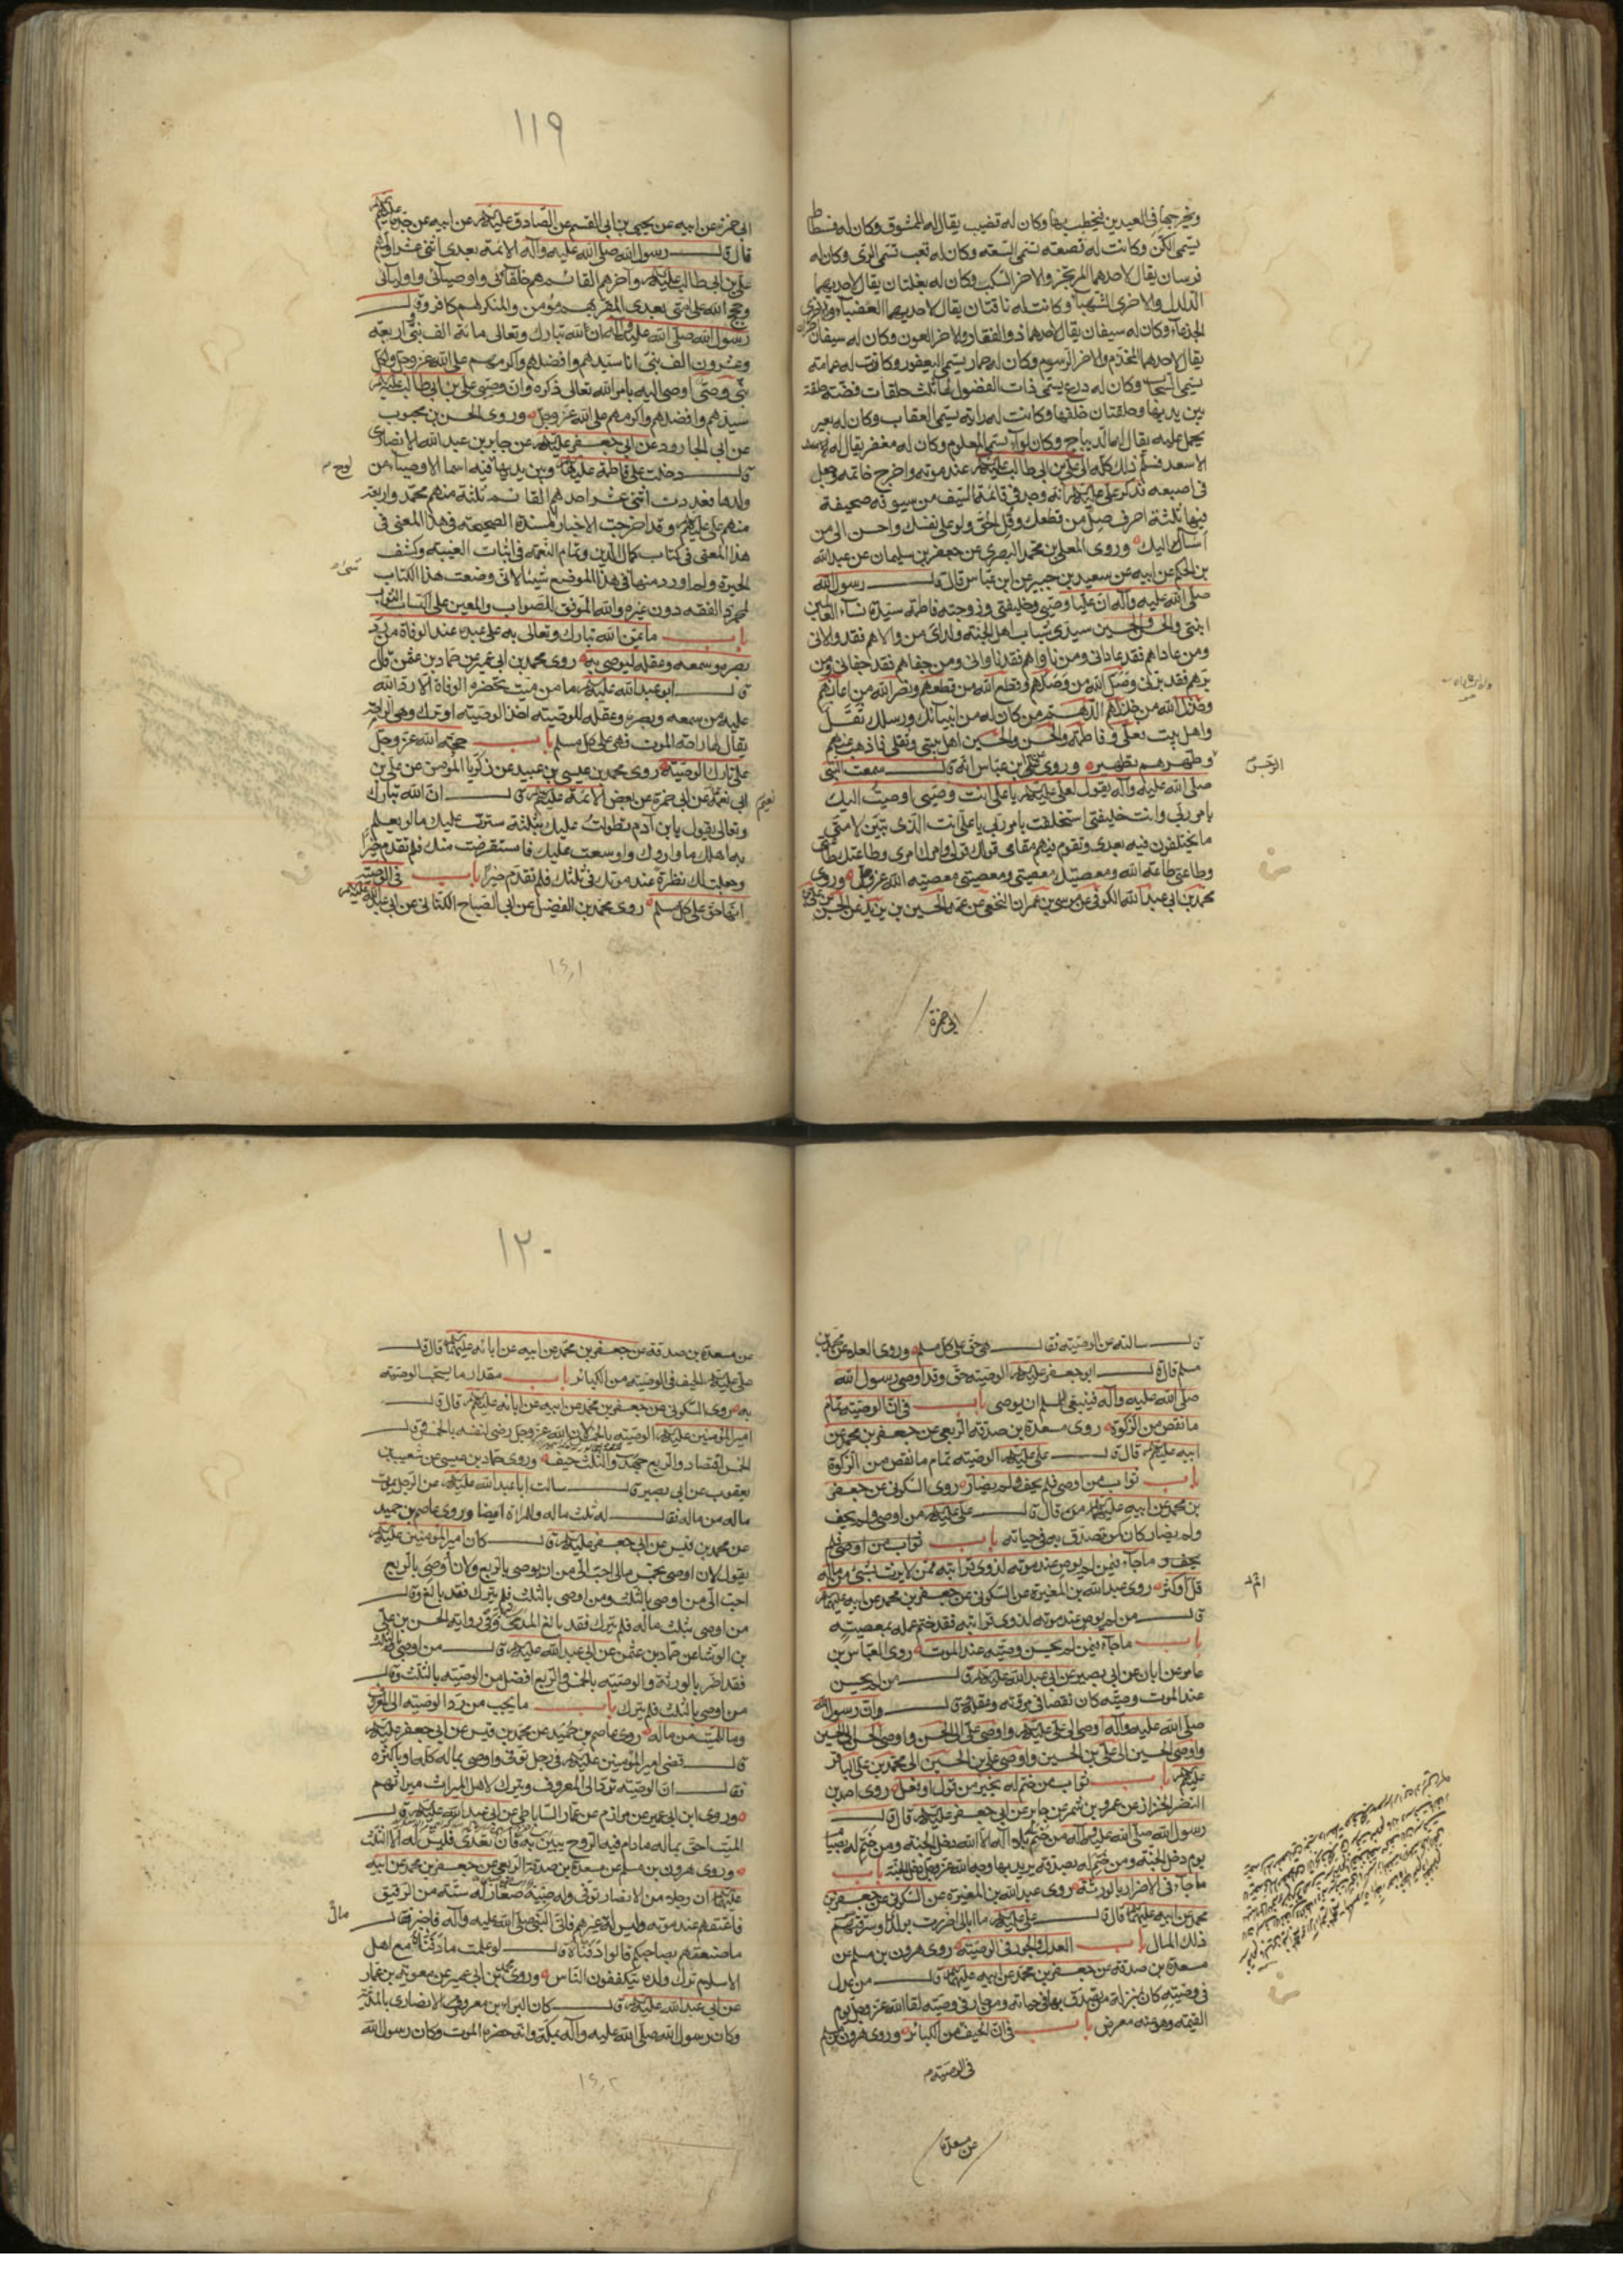 ويخرجها فى العيدين فيخطب بها وكان له قضيب يقال له الممشوق وكان له فسطاط
يسمى الكن وكانت له قصعة تسمى السعة وكان له قعب تسمى الرى وكان له
فرسان يقال لاحدهما المرتجز والاخر السكب وكان له بغلتان يقال لاحديهما
الدلدل والاخرى الشهبا وكانت له ناقتان يقال لاحديهما العضبا والاخرى
الجذعآء وكان له سيفان يقال لاحدهما ذو الفقار والاخر العون وكان له سيفان اخران
يقال لاحدهما المخذم والاخر الرسوم وكان له حمار يسمى اليعفور وكانت له عمامة
يسمى السحاب وكان له درع يسمى ذات الفضول لها ثلث حلقات فضة حلقة
بين يديها وحلقتان خلفها وكانت له راية يسمى العقاب وكان له بعير
يحمل عليه يقال له الديباج وكان لوآء يسمى المعلوم وكان له مغفر يقال له
الاسعد فسلم ذلك كله الى على بن ابى طالب عليه السلام عند موته واخرج خاتمه وجعل
فى اصبعه فذكر على عليه السلام انه وجد فى قائمة السيف من سيوفه صحيفة
فيها ثلثة احرف صل من قطعك وقل الحق ولو على نفسك واحسن الى من
اسآء اليك وروى المعلى بن محمد البصرى عن جعفر بن سليمان عن عبد الله
بن الحكم عن ابيه عن سعيد بن جبير عن ابن عباس قال قال رسول الله
صلى الله عليه وآله ان عليا وصيى وخليفتى وزوجته فاطمة سيدة نسآء العالمين
ابنتى والحسن والحسين سيدى شباب اهل الجنة ولداى من والاهم فقد والانى
ومن عاداهم فقد عادانى ومن ناواهم فقد ناوانى ومن جفاهم فقد جفانى ومن
برهم فقد برنى وصل الله من وصلهم وقطع الله من قطعهم ونصر الله من اعانهم
وخذل الله من خذلهم اللهم من كان له من انبيائك ورسلك ثقل
واهل بيت فعلى وفاطمة والحسن والحسين اهل بيتى وثقلى فاذهب عنهم
الرجس
وطهرهم تطهيرا وروى عن ابن عباس انه قال سمعت النبى
صلى الله عليه وآله يقول لعلى عليه السلام يا على انت وصيى اوصيت اليك
بامر ربى وانت خليفتى استخلفتك بامر ربى يا على انت الذى تبين لامتى
ما يختلفون فيه بعدى وتقوم فيهم مقامى قولك قولى وامرك امرى وطاعتك طاعتى
وطاعتى طاعة الله ومعصيتك معصيتى ومعصيتى معصية الله عز وجل وروى
محمد بن ابى عبد الله الكوفى عن موسى بن عمران النخعى عن عمه الحسين بن يزيد عن الحسن بن على بن
ابى حمزة
١١٩
ابى حمزة عن ابيه عن يحيى بن ابى القسم عن الصادق عليه السلام عن ابيه عن جده عليهم السلام
قال قال رسول الله صلى الله عليه وآله الائمة بعدى اثنى عشر اولهم
على بن ابى طالب عليه السلام وآخرهم القائم هم خلفائى واوصيائى واوليائى
وحجج الله على امتى بعدى المقر بهم مؤمن والمنكر لهم كافر وقال
رسول الله صلى الله عليه وآله ان لله تبارك وتعالى مائة الف نبى واربعة
وعشرون الف نبى انا سيدهم وافضلهم واكرمهم على الله عز وجل ولكل
نبى وصى اوصى اليه بامر الله تعالى ذكره وان وصيى على بن ابى طالب عليه السلام
سيدهم وافضلهم واكرمهم على الله عز وجل وروى الحسن بن محبوب
عن ابى الجارود عن ابى جعفر عليه السلام عن جابر بن عبد الله الانصارى
قال دخلت على فاطمة عليها السلام وبين يديها فيه اسمآ الاوصيآء من
لوح
ولدها فعددت اثنى عشر احدهم القائم ثلثة منهم محمد واربعة
منهم على عليهم السلام وقد اخرجت الاخبار المسندة الصحيحة فى هذا المعنى فى
هذا المعنى فى كتاب كمال الدين وتمام النعمة فى اثبات الغيبة وكشف
الحيرة ولم اورد منها فى هذا الموضع شيئا لانى وضعت هذا الكتاب
لمجرد الفقه دون غيره والله الموفق للصواب والمعين على اكتساب الثواب
باب ما يمن الله تبارك وتعالى به على عبده عند الوفاة من رد
بصره وسمعه وعقله ليوصى به روى محمد بن ابى عمير عن حماد بن عثمن قال
قال ابو عبد الله عليه السلام ما من ميت تحضره الوفاة الا رد الله
عليه من سمعه وبصره وعقله للوصية اخذ الوصية او ترك وهى الراحة التى
يقال لها راحة الموت فهى على كل مسلم باب حجة الله عز وجل
على تارك الوصية روى محمد بن عيسى بن عبيد عن زكريا المؤمن عن على بن
ابى نعيم عن ابى حمزة عن بعض الائمة عليهم السلام قال ان الله تبارك
نعيم
وتعالى يقول يا ابن آدم تطولت عليك بثلثة سترت عليك ما لو يعلم
به اهلك ما واروك واوسعت عليك فاستقرضت منك فلم تقدم خيرا
وجعلت لك نظرة عند موتك فى ثلثك فلم تقدم خيرا باب فى الوصية
انها حق على كل مسلم روى محمد بن الفضيل عن ابى الصباح الكنانى عن ابى عبد الله عليه السلام
قال سالته عن الوصية فقال هى حق على كل مسلم وروى العلا عن محمد بن
مسلم قال قال ابو جعفر عليه السلام الوصية حق وقد اوصى رسول الله
صلى الله عليه وآله فينبغى للمسلم ان يوصى باب فى ان الوصية تمام
ما نقص من الزكوة روى مسعدة بن صدقة الربعى عن جعفر بن محمد عن
ابيه عليهم السلام قال قال على عليه السلام الوصية تمام ما نقص من الزكوة
باب ثواب من اوصى فلم يحف ولم يضار روى السكونى عن جعفر
بن محمد عن ابيه عليهما السلام قال قال على عليه السلام من اوصى ولم يحف
ولم يضار كان كمن تصدق به فى حياته باب ثواب من اوصى فلم
يحف و ما جآء فيمن لم يوص عند موته لذوى قرابته ممن لا يرث بشئ من ماله
قل او كثر روى عبد الله بن المغيرة عن السكونى عن جعفر بن محمد عن ابيه عليهما السلام
قال من لم يوص عند موته لذوى قرابته فقد ختم عمله بمعصية
باب ما جآء فيمن لم يحسن وصيته عند الموت روى العباس بن
عامر عن ابان عن ابى بصير عن ابى عبد الله عليه السلام قال من لم يحسن
عند الموت وصيته كان نقصا فى مروته وعقله قال وان رسول الله
صلى الله عليه وآله اوصى الى على عليه السلام واوصى على الى الحسن واوصى الحسن الى الحسين
واوصى الحسين الى على بن الحسين واوصى على بن الحسين الى محمد بن على الباقر
عليهم السلام باب ثواب من ختم له بخير من قول او فعل روى احمد بن
النضر الخزاز عن عمرو بن شمر عن جابر عن ابى جعفر عليه السلام قال قال
رسول الله صلى الله عليه وآله من ختم له بلا اله الا الله دخل الجنة ومن ختم له بصيام
يوم دخل الجنة ومن ختم له بصدقة يريد بها وجه الله عز وجل دخل الجنة باب
ما جآء فى الاضرار بالورثة روى عبد الله بن المغيرة عن السكونى عن جعفر بن
محمد عن ابيه عليهما السلام قال قال على عليه السلام ما ابالى اضررت بولدى او سرقتهم
ذلك المال باب العدل والجور فى الوصية روى هرون بن مسلم عن
مسعدة بن صدقة عن جعفر بن محمد عن ابيه عليهما السلام قال من عدل
فى وصيته كان بمنزلة من تصدق بها فى حياته ومن جار فى وصيته لقى الله عز وجل يوم
القيمة وهو عنه معرض باب فى ان الحيف من الكبائر وروى هرون بن مسلم
فى الوصية
عن مسعدة
١٢٠
عن مسعدة بن صدقة عن جعفر بن محمد عن ابيه عن ابائه عليهم السلام قال قال
على عليه السلام الحيف فى الوصية من الكبائر باب مقدار ما يستحب الوصية
به روى السكونى عن جعفر بن محمد عن ابيه عن ابائه عليهم السلام قال قال
امير المؤمنين عليه السلام الوصية بالخمس لان الله عز وجل رضى لنفسه بالخمس وقال
الخمس اقتصاد والربع جهد والثلث حيف وروى حماد بن عيسى عن شعيب بن
يعقوب عن ابى بصير قال سالت ابا عبد الله عليه السلام عن الرجل يموت
ماله من ماله فقال له ثلث ماله وللمراة ايضا وروى عاصم بن حميد
عن محمد بن قيس عن ابى جعفر عليه السلام قال كان امير المؤمنين عليه السلام
يقول لان اوصى بخمس مالى احب الى من ان اوصى بالربع ولان اوصى بالربع
احب الى من اوصى بالثلث ومن اوصى بالثلث فلم يترك فقد بالغ وقال
من اوصى بثلث ماله فلم يترك فقد بالغ المدى وفى رواية الحسن بن على
بن الوشا عن حماد بن عثمن عن ابى عبد الله عليه السلام قال من اوصى بالثلث
فقد اضر بالورثة والوصية بالخمس والربع افضل من الوصية بالثلث وقال
من اوصى بالثلث فلم يترك باب ما يجب من رد الوصية الى المعروف
وما للميت من ماله روى عاصم بن حميد عن محمد بن قيس عن ابى جعفر عليه السلام
قال قضى امير المؤمنين عليه السلام فى رجل توفى واوصى بماله كله او باكثره
فقال ان الوصية ترد الى المعروف ويترك لاهل الميراث ميراثهم
وروى ابن ابى عمير عن مرازم عن عمار الساباطى عن ابى عبد الله عليه السلام قال
الميت احق بماله مادام فيه الروح يبين به فان تعدى فليس له الا الثلث
وروى هرون بن مسلم عن مسعدة بن صدقة الربعى عن جعفر بن محمد عن ابيه
عليهما السلام ان رجلا من الانصار توفى وله صبية صغار له ستة من الرقيق
فاعتقهم عند موته وليس له غيرهم فاتى النبى صلى الله عليه وآله فاخبر فقال
مال
ما صنعتم بصاحبكم قالوا دفناه قال لو علمت ما دفناه مع اهل
الاسلام ترك ولده يتكففون الناس وروى محمد بن ابى عمير عن معوية بن عمار
عن ابى عبد الله عليه السلام قال كان البرآء بن معرور الانصارى بالمدينة
وكان رسول الله صلى الله عليه وآله بمكة وانه حضره الموت وكان رسول الله